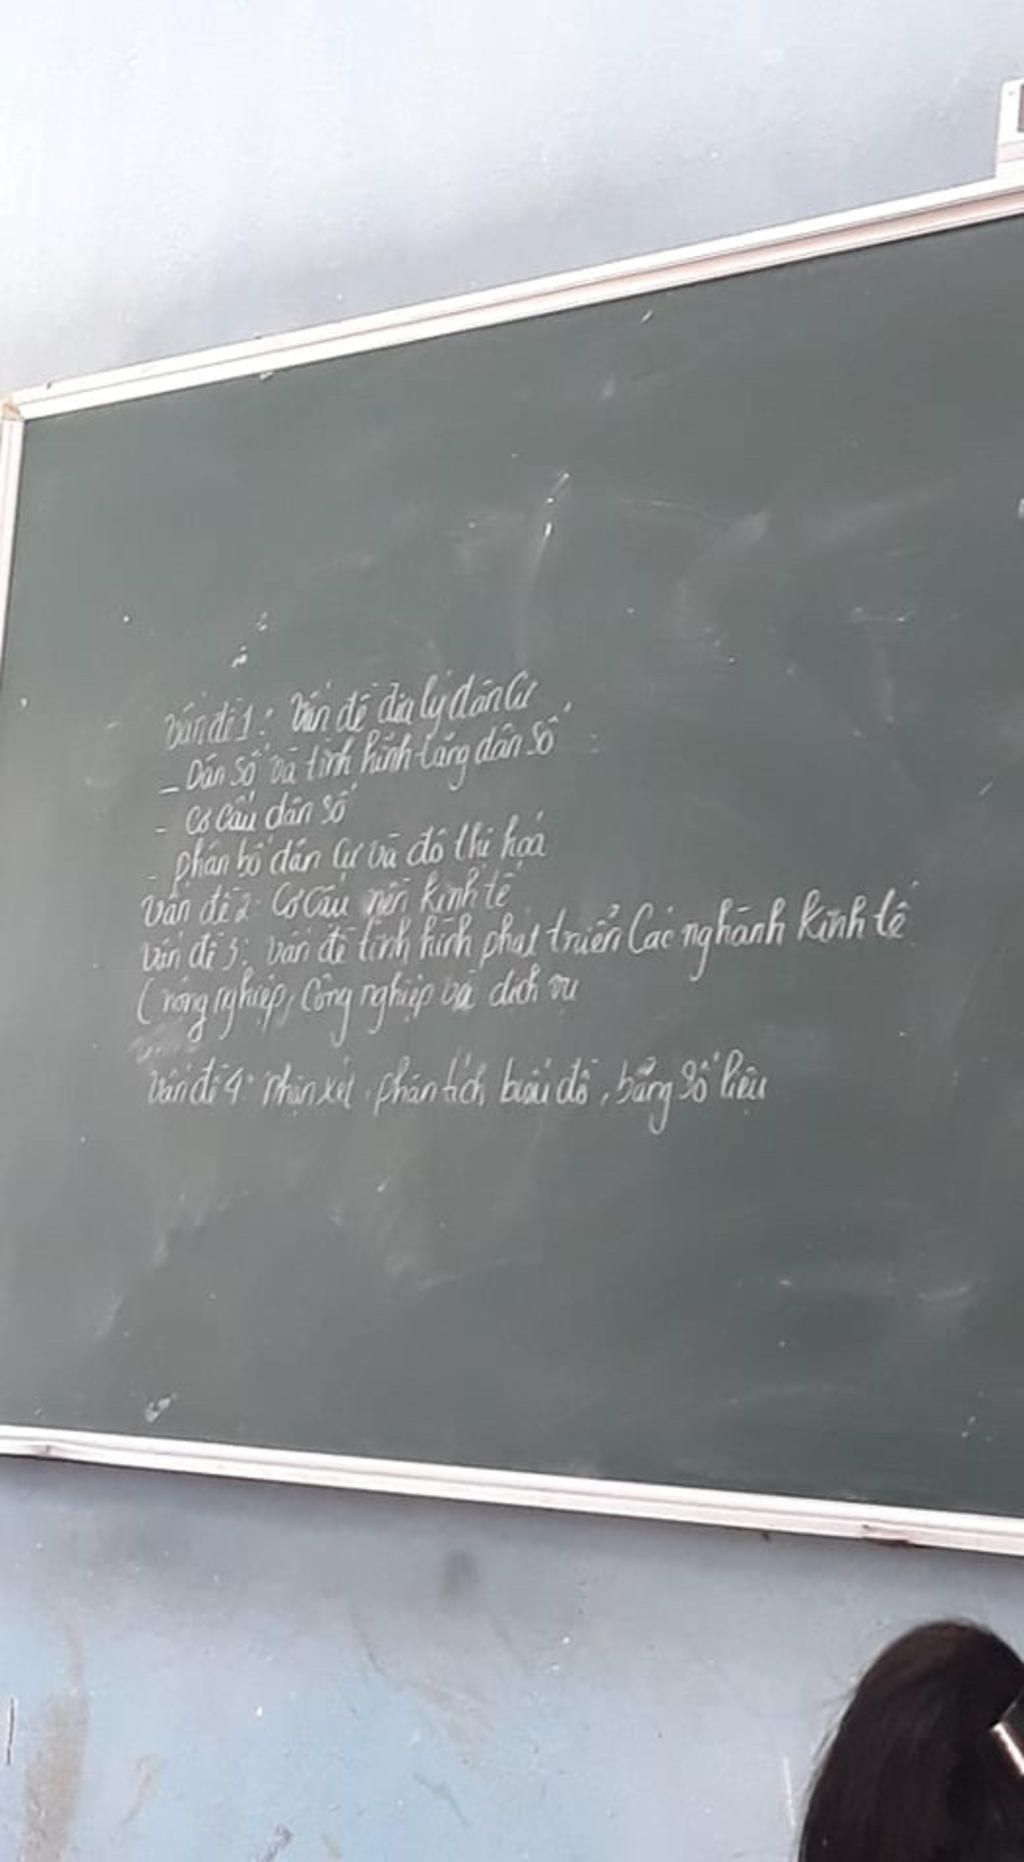 Vấn đề 1: Vấn đề địa lý dân cư
- Dân số và tình hình tăng dân số
- Cơ cấu dân số
- phân bố dân cư và đô thị hoá
Vấn đề 2: Cơ cấu nền kinh tế
Vấn đề 3: Vấn đề tình hình phát triển Các nghành kinh tế
(nông nghiệp, Công nghiệp và dịch vụ
Vấn đề 4: Nhận xét, phân tích biểu đồ, bảng số liệu